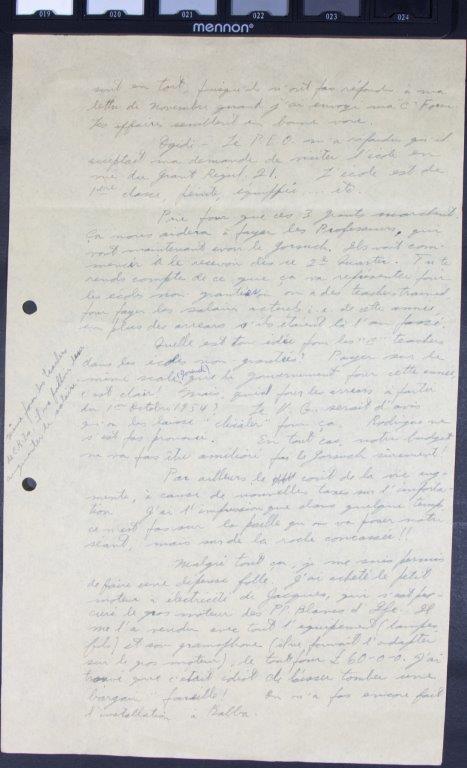 019 020 021 022 023 024
mennon
sont en tout, puisqu'ils n'ont pas répondu à ma
lettre de novembre quand j'ai envoyé ma "C" Form
Les affaires semblent en bonne voie.
Ogidi - Le P.E.O. m'a répondu qu'il
acceptait ma demande de visiter l'école en
vue du Grant Regul. 21. L'école est de
1ère classe, peinte, équippée.... etc.
Prie pour que ces 3 grants marchent.
Ça nous aidera à payer les Professeurs, qui
vont maintenant avoir le Gorsuch. Ils vont com-
mencer à le recevoir dès ce 2d Quarter. Tu te
rends compte de ce que ça va représenter pour
les écoles non grantées on a des teachers trained
pour payer les salaires actuels i.e. de cette année
en plus des arrears s'ils étaient là l'an passé.
Quelle est ton idée pour les teachers
dans les écoles non-grantées? Payer sur la
même scale (Gorsuch) que le gouvernement pour cette année,
c'est clair! Mais, quid pour les arrears à partir
du 1er Octobre 1954? Le V.G. serait d'avis
qu'on les laisse pour ça. Rodrigue ne
s'est pas prononcé. En tout cas, notre budget
ne va pas être amélioré par le Gorsuch sûrement!
même pour les teachers
augmenter de salaire
Par ailleurs le coût de la vie aug-
mente, à cause de nouvelles taxes sur l'importa-
tion. J'ai l'impression que dans quelque temps
ce n'est pas sur la paille qu'on va poser notre
séant, mais sur de la roche concassée!!
Malgré tout ça, je me suis permis
de faire une dépense folle. J'ai acheté le petit
moteur à électricité de Jacques, qui s'est pro-
curé le gros moteur des PP. Blancs d'Ife. Il
me l'a vendu avec tout l'équipement (lampes,
fils) et son gramophone (il ne pouvait l'adapter
sur le gros moteur), le tout pour £60-0-0. J'ai
trouvé que c'était idiot de laisser tomber une
bargain pareille! On n'a pas encore fait
l'installation à Kabba.